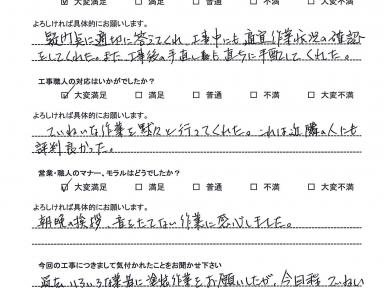 ☑ 大変満足 □ 満足 □ 普通 □ 不満 □ 大変不満
よろしければ具体的にお願いします。
疑問点に適切に答えてくれ、工事中にも適宜作業状況の確認
をしてくれた。また、工事後の手直し も直ちに手配してくれた。
工事職人の対応はいかがでしたか？
☑ 大変満足 □ 満足 □ 普通 □ 不満 □ 大変不満
よろしければ具体的にお願いします。
ていねいな作業を黙々と行ってくれた。これは近隣の人にも
評判良かった。
営業・職人のマナー、モラルはどうでしたか？
☑ 大変満足 □ 満足 □ 普通 □ 不満 □ 大変不満
よろしければ具体的にお願いします。
朝晩の挨拶、音をたてない作業に感心しました。
今回の工事につきまして気付かれたことをお聞かせ下さい
いろいろな業者に 作業をお願いしたが、今日程ていねい